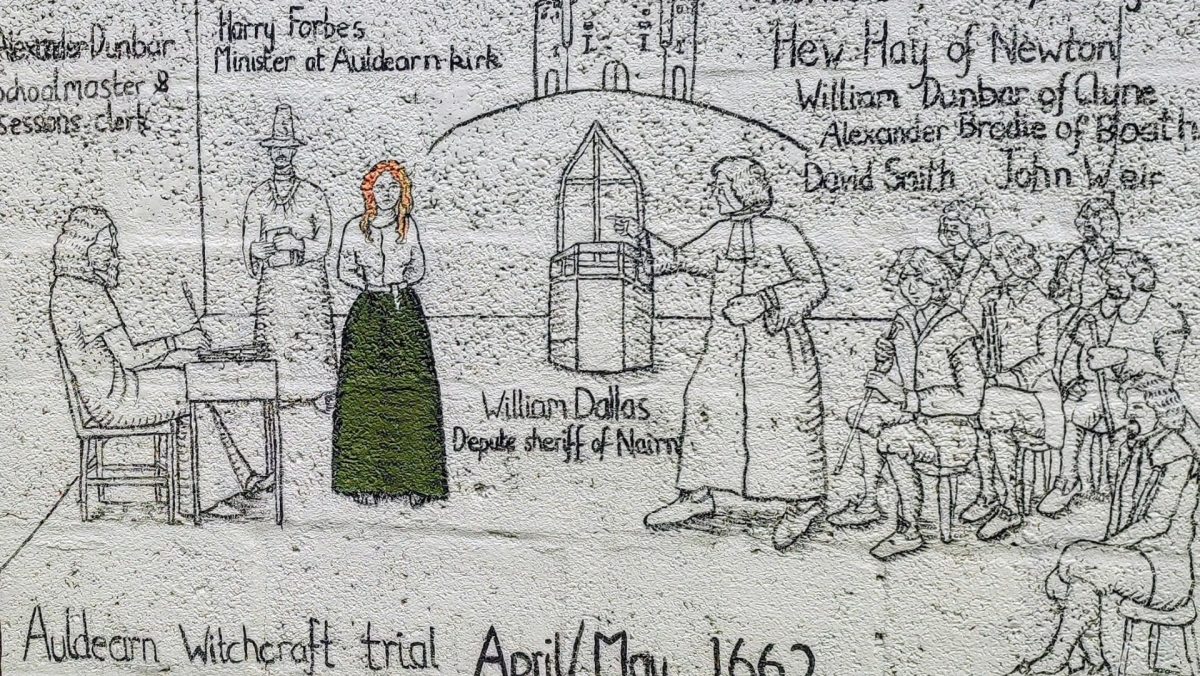 Alexander Dunbar
schoolmaster &
sessons clerk
Harry Forbes
Minister at Auldearn kirk
Hew Hay of Newton
William Dunbar of Clune
Alexander Brodie of Boath
David Smith John Weir
William Dallas
Depute sheriff of Nairn
Auldearn Witchcraft trial April/May 1662